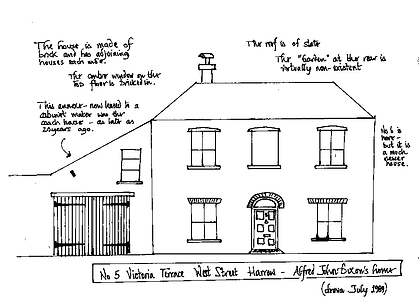 The house is made of
brick and has adjoining
houses each side.
The center window on the
top floor is bricked in.
This annexe - now leased to a
cabinet maker was the
coach house - as late as
20 years ago.
The roof is of slate
The "Garden" at the rear is
virtually non-existent
No 6 is
here -
but it is
a much
newer
house.
No 5 Victoria Terrace West Street Harrow - Alfred John Dixon's home
(drawn July 1989)